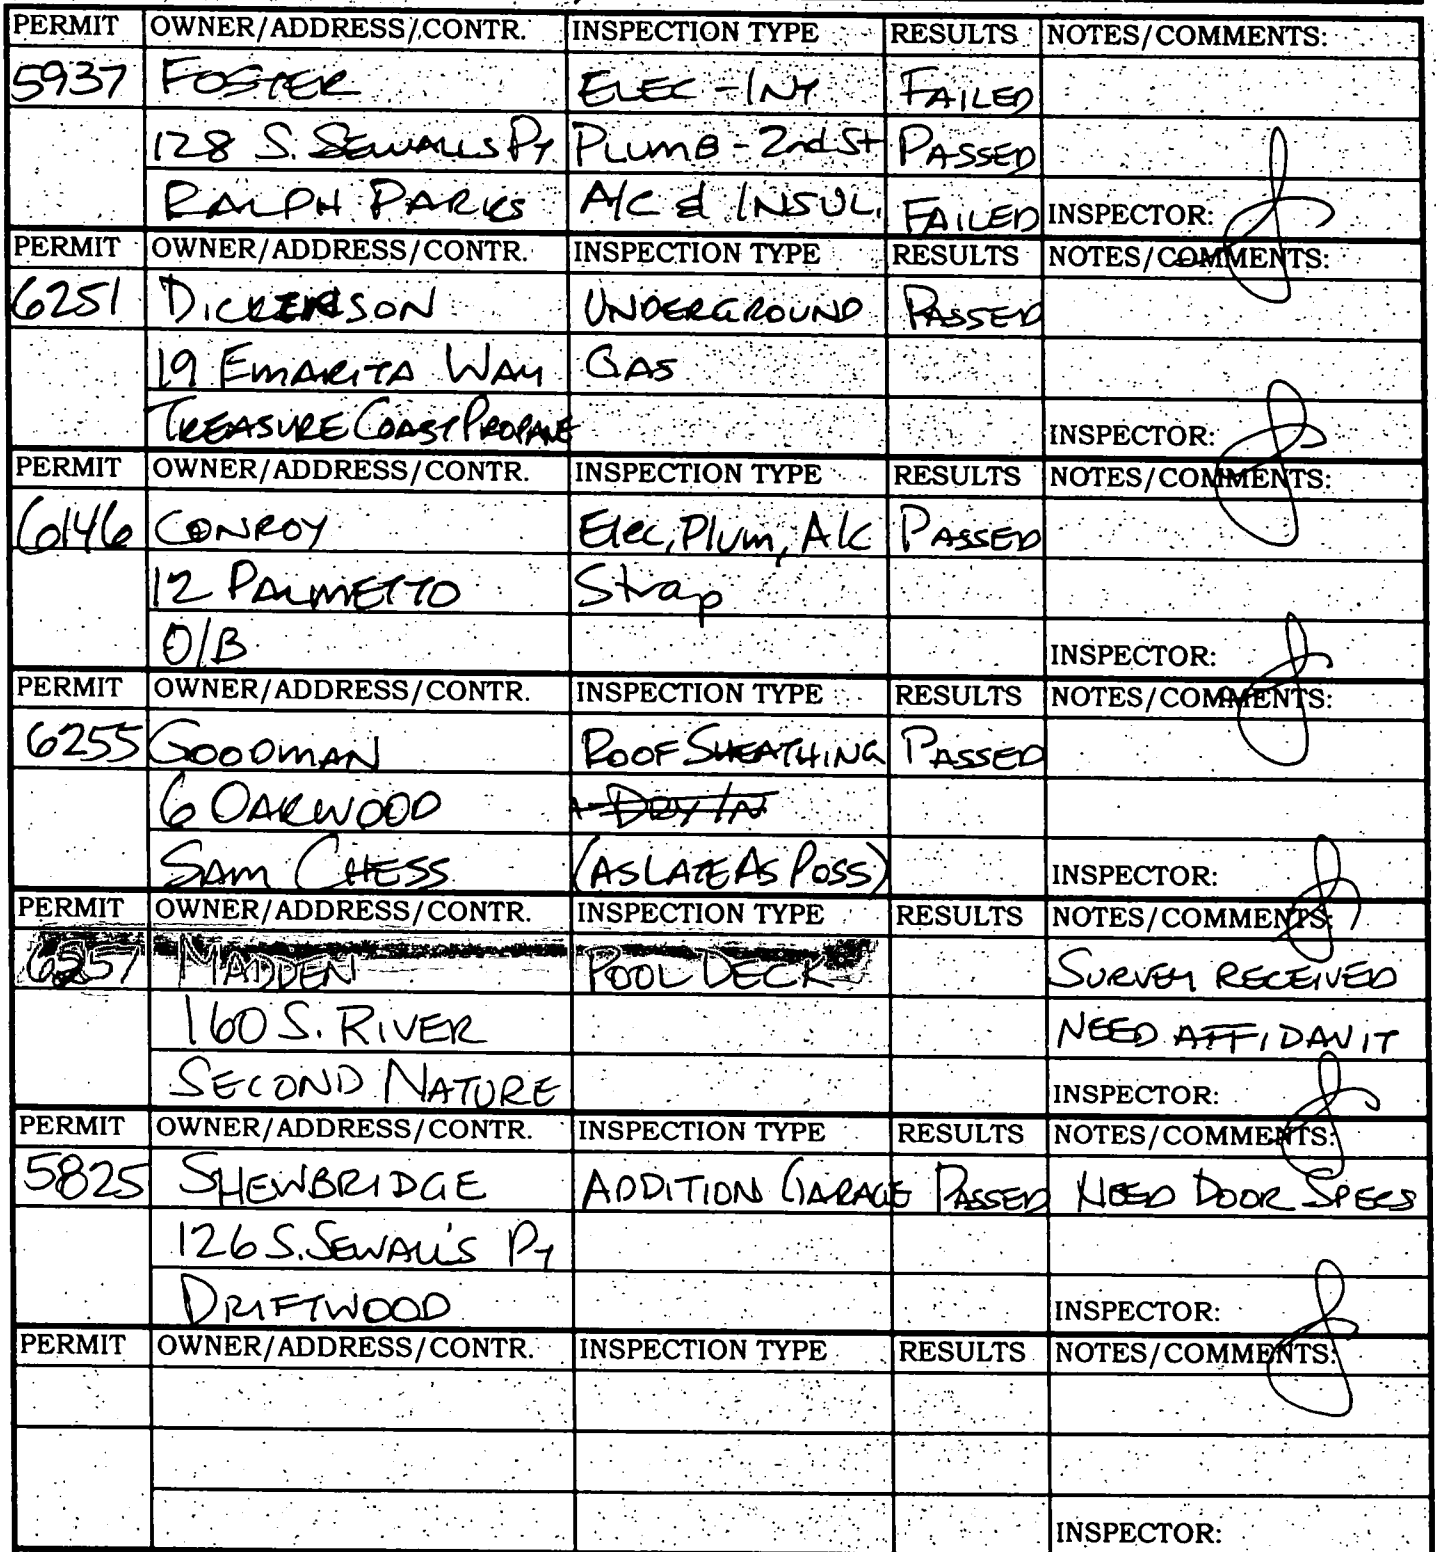 PERMIT OWNER/ADDRESS/CONTR. INSPECTION TYPE RESULTS NOTES/COMMENTS:
5937 FOSTER ELEC - INT FAILED
128 S. SEWALLS PT PLUMB - 2nd St PASSED
RALPH PARKS A/C & INSUL. FAILED INSPECTOR:
PERMIT OWNER/ADDRESS/CONTR. INSPECTION TYPE RESULTS NOTES/COMMENTS:
6251 DICKERSON UNDERGROUND PASSED
19 EMARITA WAY GAS
TREASURE COAST PROPANE INSPECTOR:
PERMIT OWNER/ADDRESS/CONTR. INSPECTION TYPE RESULTS NOTES/COMMENTS:
6146 CONROY Elec, Plum, A/c PASSED
12 PALMETTO Strap
O/B INSPECTOR:
PERMIT OWNER/ADDRESS/CONTR. INSPECTION TYPE RESULTS NOTES/COMMENTS:
6255 GOODMAN ROOF SHEATHING PASSED
6 OAKWOOD DRY IN
SAM CHESS (AS LATE AS POSS) INSPECTOR:
PERMIT OWNER/ADDRESS/CONTR. INSPECTION TYPE RESULTS NOTES/COMMENTS:
6257 MADDEN POOL DECK SURVEY RECEIVED
160 S. RIVER NEED AFFIDAVIT
SECOND NATURE INSPECTOR:
PERMIT OWNER/ADDRESS/CONTR. INSPECTION TYPE RESULTS NOTES/COMMENTS:
5825 SHEWBRIDGE ADDITION GARAGE PASSED NEED DOOR SPECS
126 S. SEWALL'S PT
DRIFTWOOD INSPECTOR:
PERMIT OWNER/ADDRESS/CONTR. INSPECTION TYPE RESULTS NOTES/COMMENTS:
INSPECTOR: